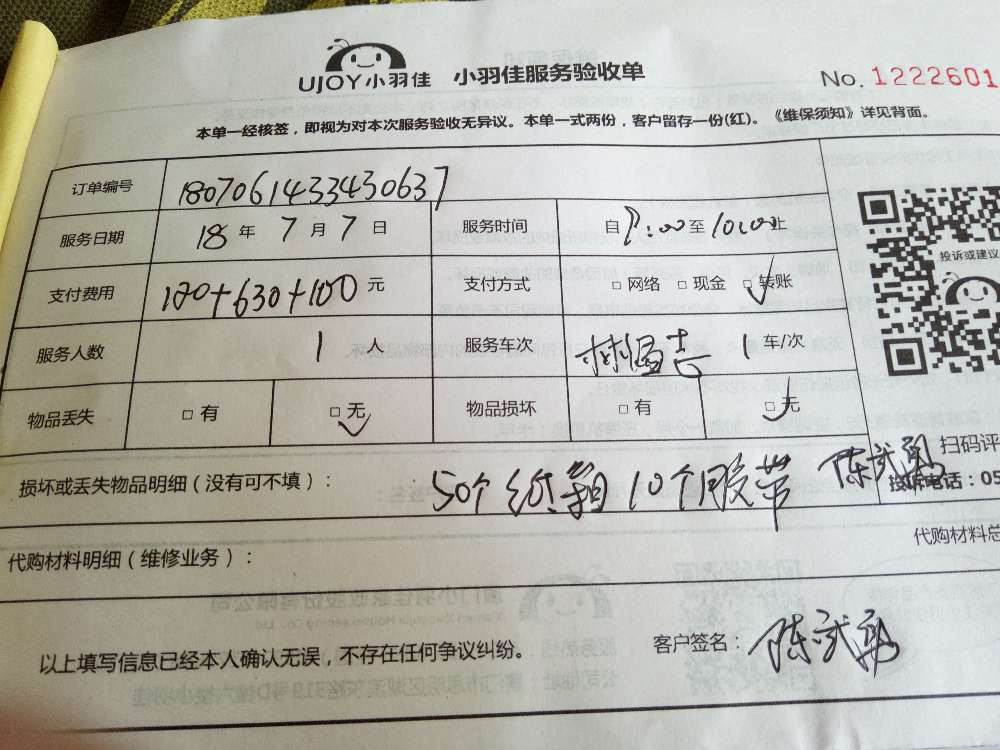 UJOY小羽佳 小羽佳服务验收单
No. 1222601
本单一经核签，即视为对本次服务验收无异议。本单一式两份，客户留存一份(红)。《维保须知》详见背面。
订单编号 180706143343063​7
服务日期 18 年 7 月 7 日 服务时间 自 8:00 至 10:00 止
投诉或建议
支付费用 120+630+100 元 支付方式 □ 网络 □ 现金 □ 转账
服务人数 1 人 服务车次 1 车/次
物品丢失 □ 有 □ 无 物品损坏 □ 有 □ 无
扫码评
损坏或丢失物品明细（没有可不填）： 50个纸箱 10个胶带 陈武勇
投诉电话：05
代购材料明细（维修业务）： 代购材料总
以上填写信息已经本人确认无误，不存在任何争议纠纷。 客户签名： 陈武勇